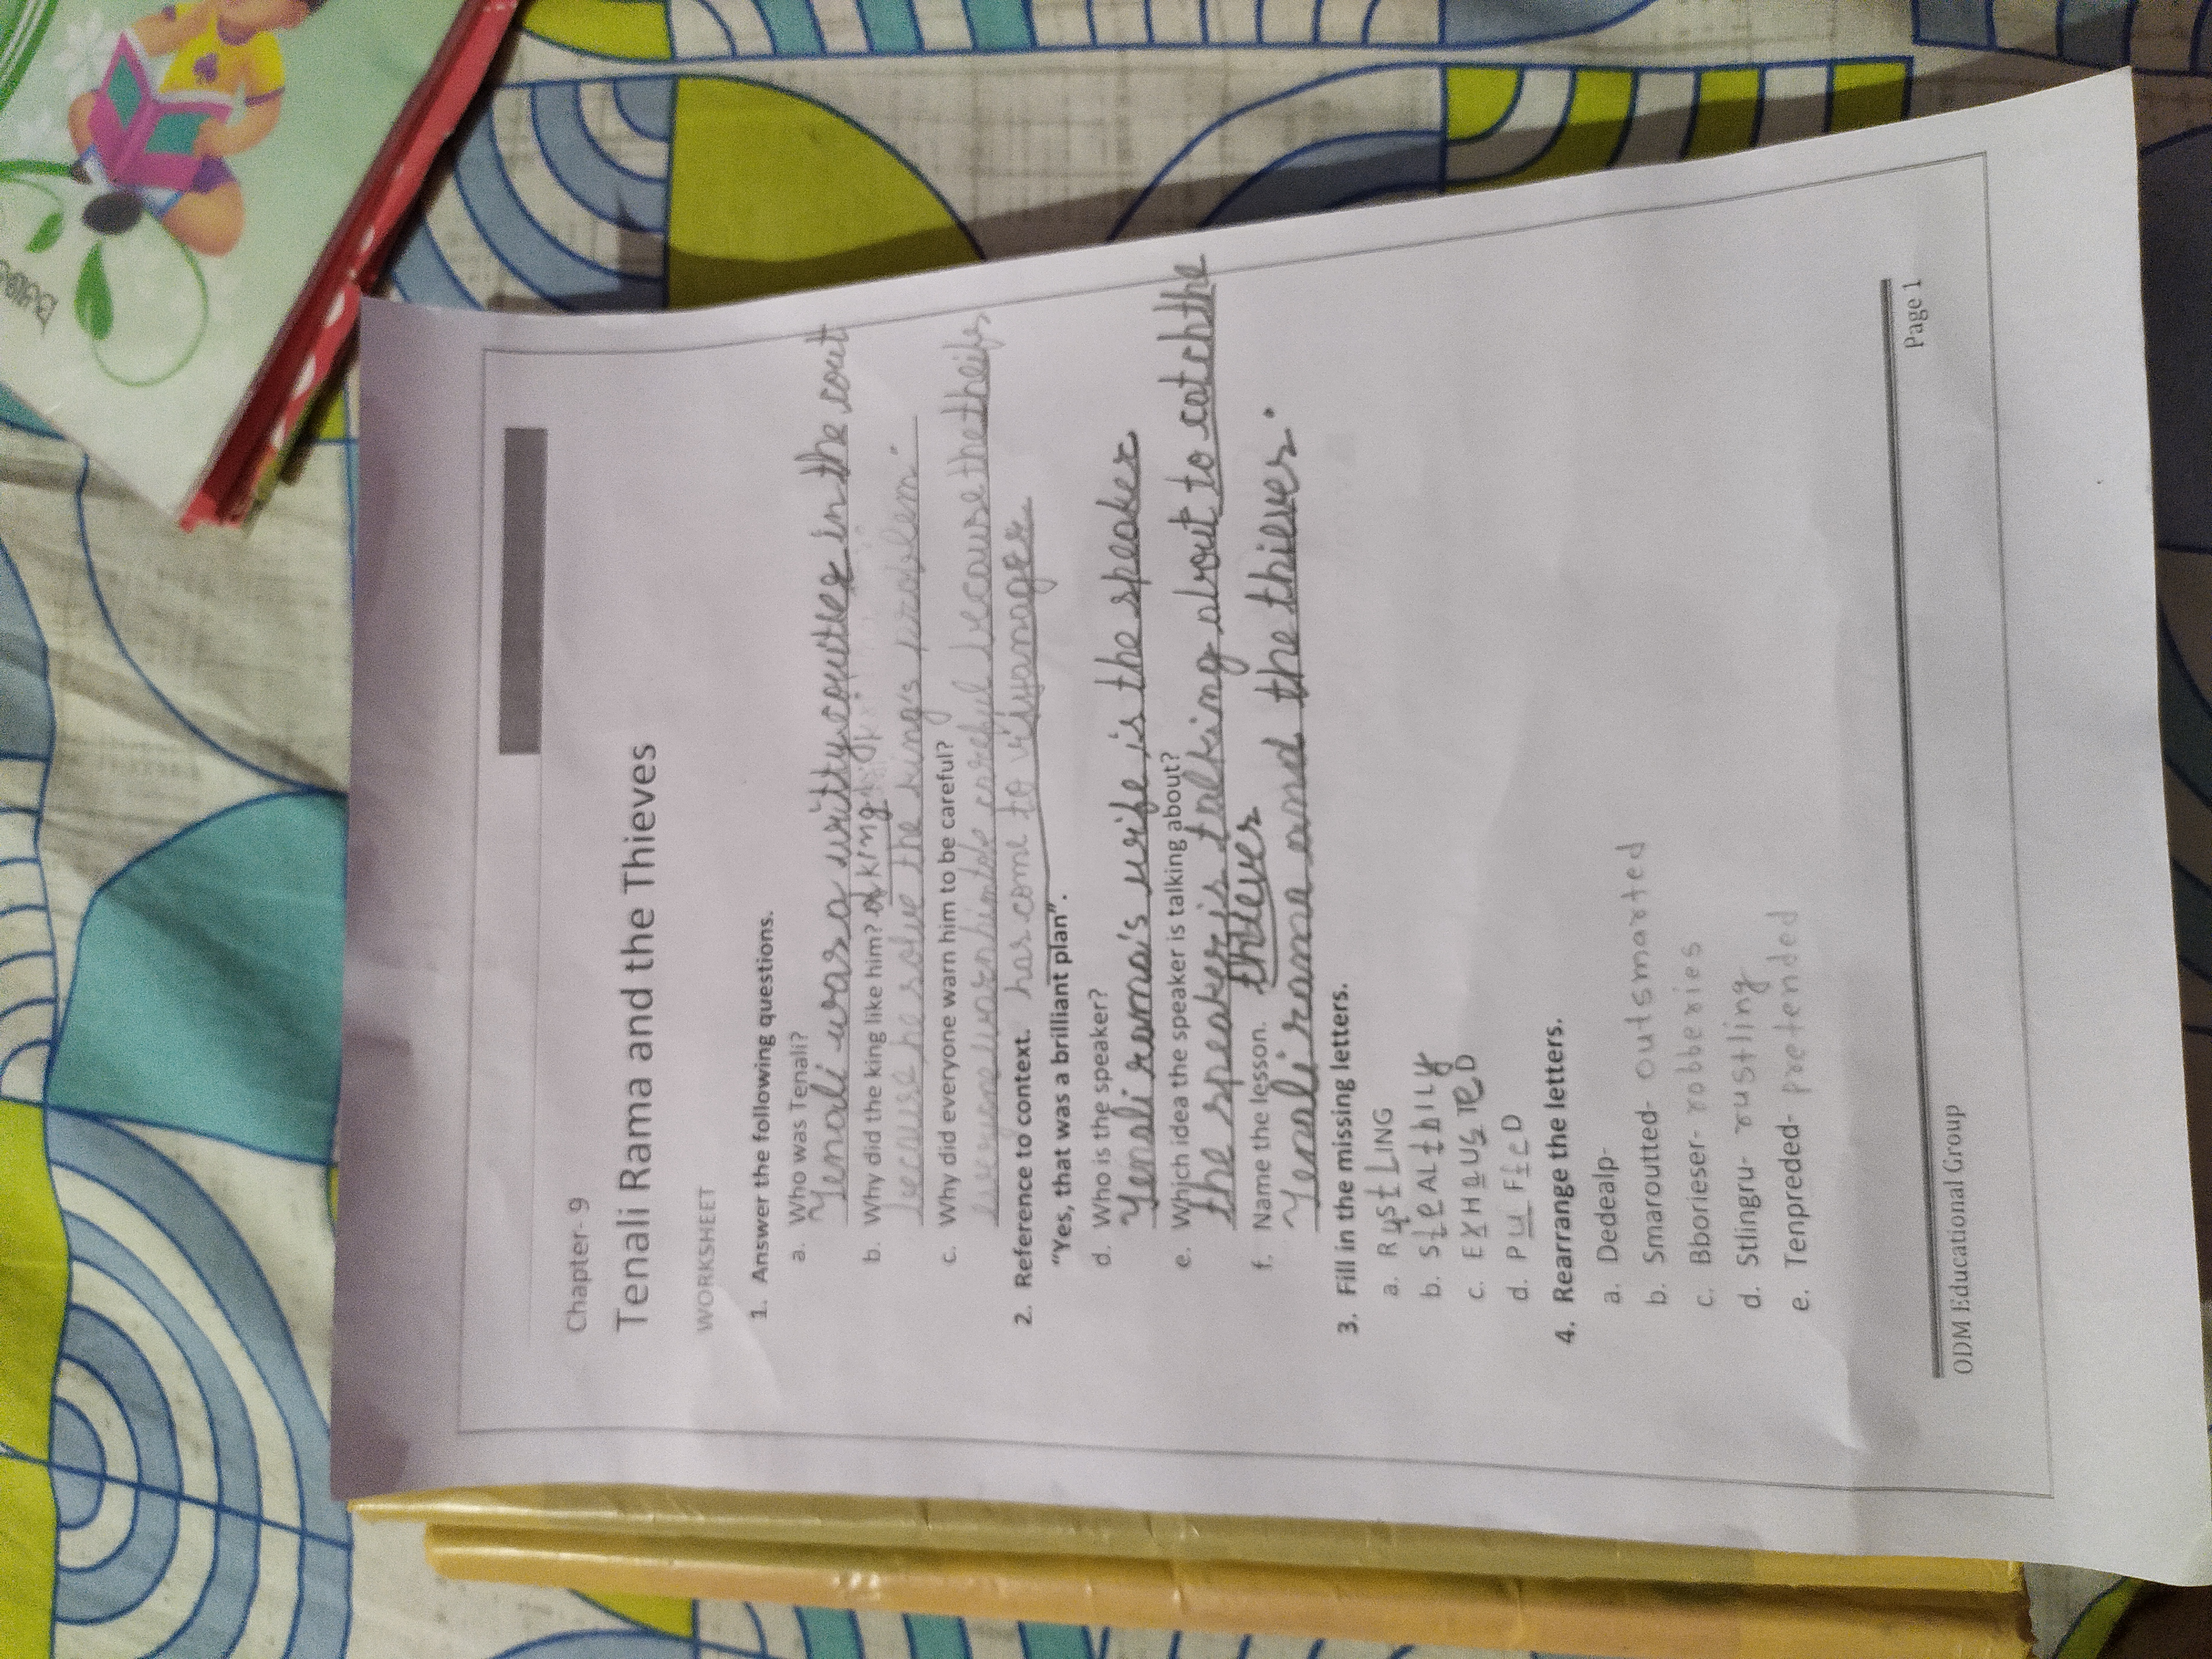 Chapter- 9
Tenali Rama and the Thieves
WORKSHEET
1. Answer the following questions.
a. Who was Tenali?
Tenali was a witty couries in the cout
b. Why did the king like him? of king
because he solve the king's problem.
c. Why did everyone warn him to be careful?
everyone warn him to be careful because the theifs
2. Reference to context. has come to visyanager.
“Yes, that was a brilliant plan”.
d. Who is the speaker?
Tenali rama's wife is the speaker
e. Which idea the speaker is talking about?
the speaker is talking about to catch the
thieves
f. Name the lesson.
Tenali rama and the thieves.
3. Fill in the missing letters.
a. RustLING
b. SteALthILy
c. EXHausTeD
d. PuFfeD
4. Rearrange the letters.
a. Dedealp-
b. Smaroutted- outsmarted
c. Bborieser- robberies
d. Stlingru- rustling
e. Tenpreded- pretended
ODM Educational Group
Page 1